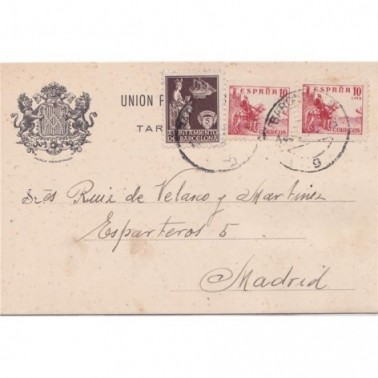 UNION P
TAR
AYUNTAMIENTO
DE BARCELONA
ESPAÑA
10
CTS
CORREOS
ESPAÑA
10
CTS
CORREOS
Sres Ruiz de Velasco y Martinez
Esparteros 5
Madrid